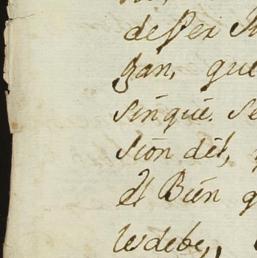 de ser
gan, que
sinque. se
sion del,
el Bien q
le debe,